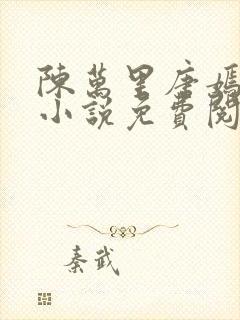 陳萬里唐嫣
小說免費閱
秦武